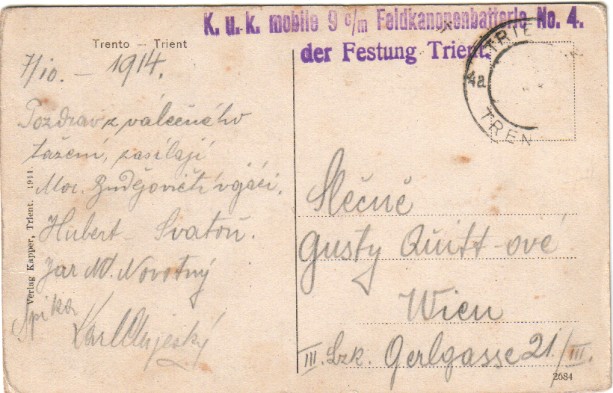 K. u. k. mobile 9 c/m Feldkanonenbatterie No. 4.
der Festung Trient.
Trento — Trient
7/10. – 1914.
Pozdrav z válečného
tažení, zasílají
Mor. Budějovičtí vojáci.
Hubert Svatoň.
Jar M. Novotný
Karl
Verlag Kapper, Trient. 1911
TRIE
4a
TREN
Slečně
Gusty Quitt-ové
Wien
III. Bzk. Gerlgasse 21/III.
2684